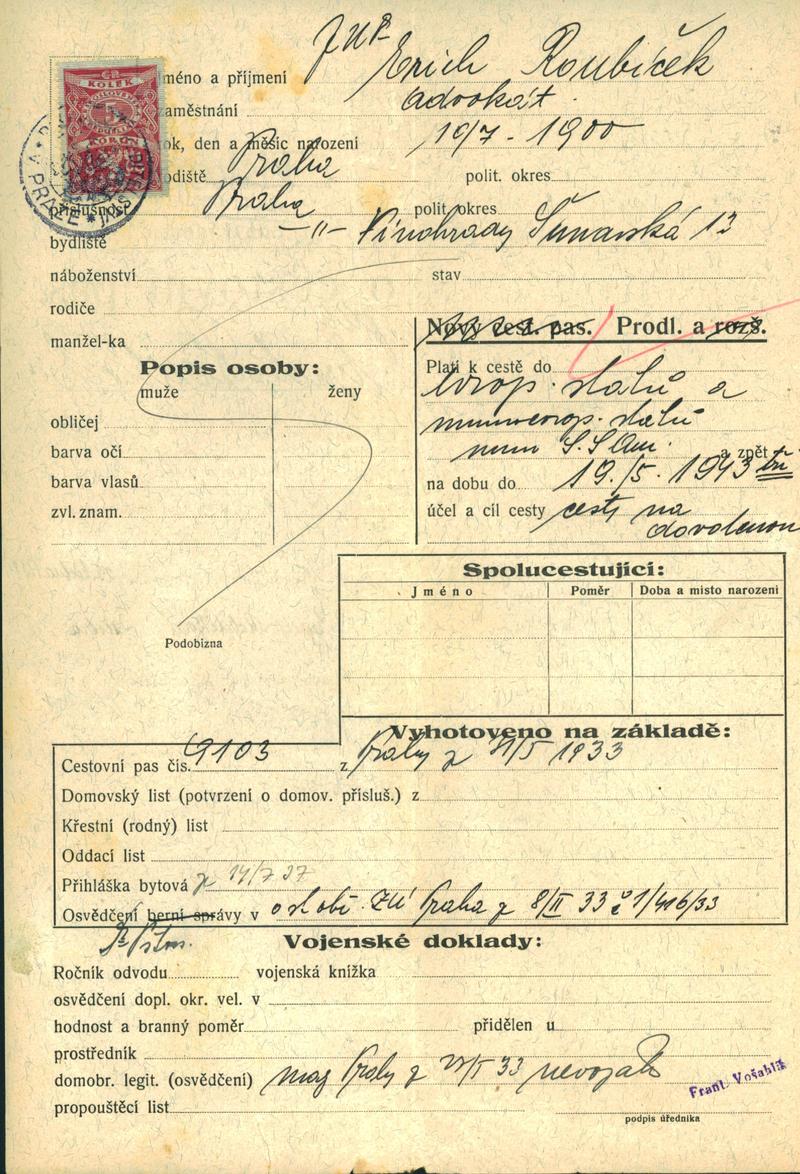 JUDr
Jméno a příjmení Erich Roubíček
zaměstnání advokát.
rok, den a měsíc narození 19/7 - 1900
rodiště Praha polit. okres
příslušnost Praha polit. okres
bydliště -"- Vinohrady Šumavská 13
náboženství stav
rodiče
manžel-ka
Nový cest. pas. Prodl. a rozš.
Popis osoby:
muže ženy
obličej
barva očí
barva vlasů
zvl. znam.
Platí k cestě do
evrop. států a
mimoevrop. států
mim S. S. Am. a zpět
na dobu do 19./5. 1943
účel a cíl cesty cesty na
dovolenou
Podobizna
Spolucestující:
Jméno Poměr Doba a místo narození
Vyhotoveno na základě:
Cestovní pas čís. 9103 z Prahy z 31/5 1933
Domovský list (potvrzení o domov. přísluš.) z
Křestní (rodný) list
Oddací list
Přihláška bytová z 14/7 37
Osvědčení berní správy v osob. ZÚ Praha z 8/II 33 č 1/416/33
Vojenské doklady:
Ročník odvodu vojenská knížka
osvědčení dopl. okr. vel. v
hodnost a branný poměr přidělen u
prostředník
domobr. legit. (osvědčení) mag Prahy z 33 nevoják
propouštěcí list
Frant. Vošahlík
podpis úředníka
KOLEK
5
KORUN
V PRAZE